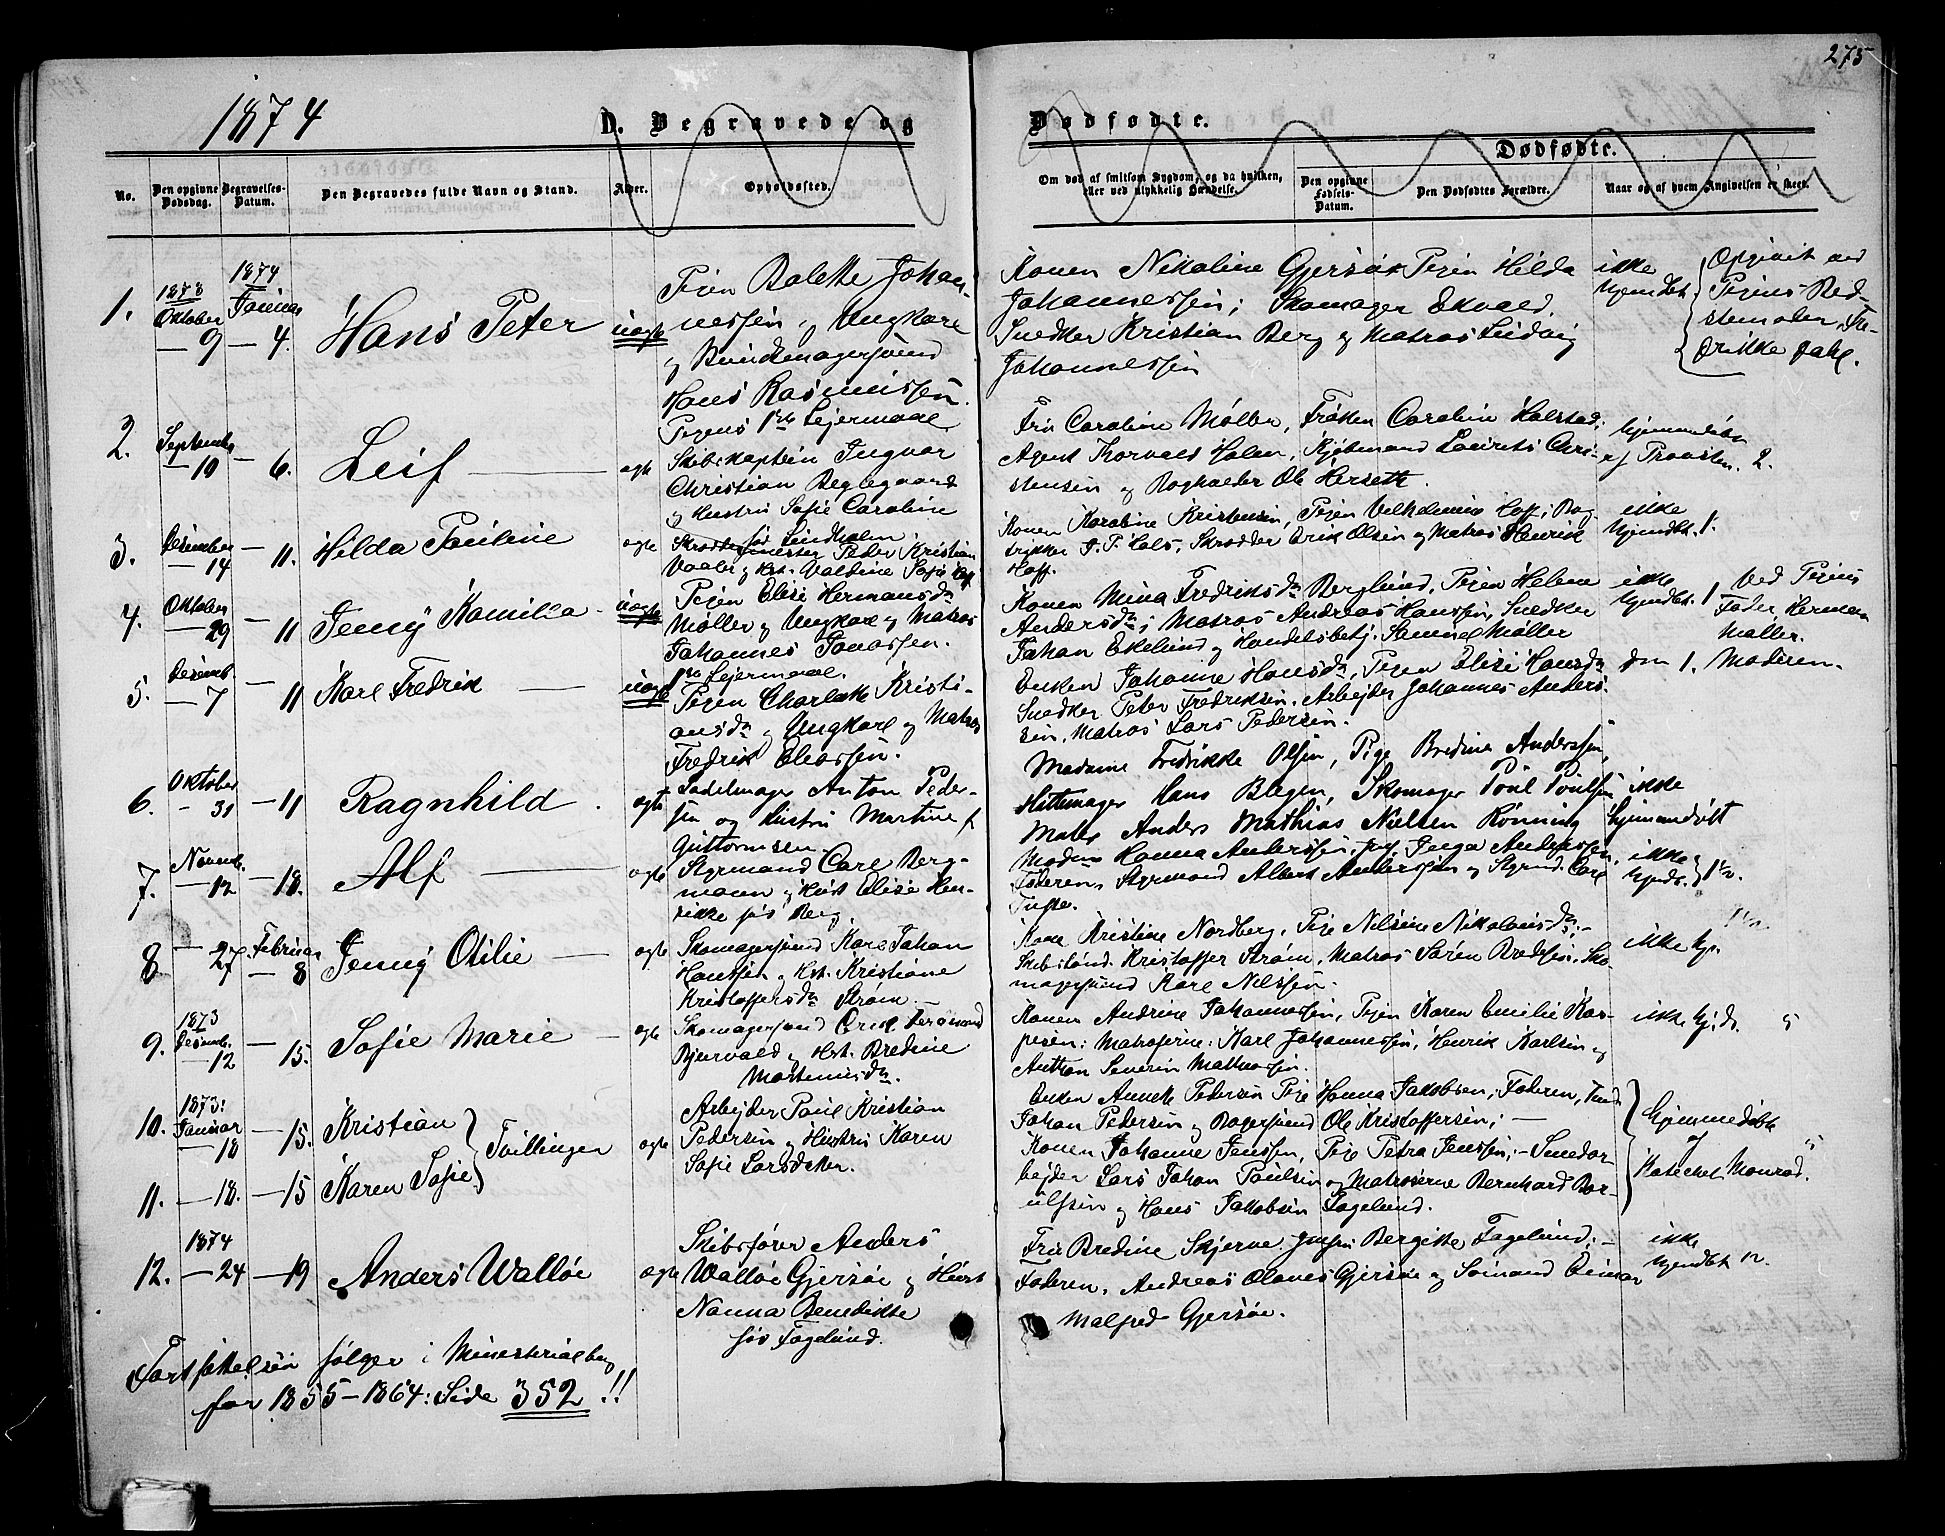 275
1874
D. Begravede og
Dødfødte.
Dødfødte.
No.
Den opgivne Dødsdag.
Begravelses-Datum.
Den Begravedes fulde Navn og Stand.
Alder.
Opholdssted.
Om død af smitsom Sygdom, og da hvilken,
eller ved ulykkelig Hændelse.
Den opgivne Fødsels-Datum.
Den Dødfødtes Forældre.
Naar og af hvem Angivelsen er skeet.
1.
1873
Oktober
9
1874
Januar
4.
Hans Peter
uægte
Pigen Bolette Johan-
nessen og Ungkarl
og Bundtmagersvend
Hans Rasmussen.
Pigens 1ste Leiermaal
Konen Nikoline Gjersøe Pigen Hilda
Johannessen; Skomager Ekvald,
Snedker Kristian Berg og Matros Ludvig
Johannessen
ikke
hjemdøbt
Opgivet ved
Pigens Bed-
stemoder, Fre-
drikke
2.
September
10
6.
Leif
ægte
Skibskaptein Ingvar
Christian Beglegaard
og Hustru Sofie Caroline
fød Lindholm
Fru Caroline Møller, Frøken Caroline Halstad;
Agent Thorvald Holm, Kjøbmand Laurits Chri-
stensen og Bogholder Ole Herseth.
hjemmedøbt
af Provsten. 2.
3.
Desember
14
11.
Hilda Pauline
ægte
Skræddermester Peder Kristian
Vaaler og Hst. Valdine Sofie
Konen Karoline Kristensen, Pigen Vilhelmine Hoff; Bog-
trykker J. P. Hals, Skrædder Erik Olsen og Matros Henrik
Hoff.
ikke
hjemdøbt. 1.
4.
Oktober
29
11
Jenny Kamilla
uægte
Pigen Elise Hermansdtr
Møller og Ungkarl og Matros
Johannes Jonassen.
1ste Leiermaal.
Konen Mina Fredriksdtr Berglund, Pigen Helene
Andersdtr; Matros Andreas Hanssen, Snedker
Johan Ekelund og Handelsbetj. Samuel Møller
ikke
hjemdøbt. 1
Ved Pigens
Fader Herman
Møller.
5.
Desemb.
7
11
Karl Fredrik
uægte
Pigen Charlotte Kristi-
ansdtr og Ungkarl og Matros
Fredrik Eliassen.
Enken Johanne Hansdtr, Pigen Elise Hansdtr
Snedker Peter Fredriksen, Arbejder Johannes Anders-
sen, Matros Lars Pedersen.
1. Moderen.
6.
Oktober
31
11
Ragnhild
ægte
Sadelmager Anton Peder-
sen og Hustru Martine f
Guttormsen
Madame Fredrikke Olsen, Pige Bredine Anderssen,
Hattemager Hans Blegen, Skomager Poul Poulsen
Maler Anders Mathias Nielsen Rønning
ikke
hjemmedøbt
7.
Novemb.
12
18.
Alf
ægte
Styrmand Carl Berg-
mann og Hust Elise Hen-
rikke fød Berg
Madme Hanna Anderssen, Inga Anderssen,
Faderen, Styrmand Albert Anderssen og Styrmd. Carl
Tufte.
ikke
hjmdt.
8
27
Februar
8
Jenny Otilie
ægte
Skomagersvend Karl Johan
Hanssen og Hst. Kristiane
Kristoffersdtr Strøm.
Kone Kristine Nordberg, Pige Nilsine Nikolaisdtr;
Skibstømd. Kristoffer Strøm, Matros Søren Bredesen, Sko-
magersvend Karl Nilssen.
ikke hj.
9.
1873
Desemb.
12
15.
Sofie Marie
ægte
Skomagersvend
Bjurvald og Hst. Bredine
Mortensdtr.
Konen Andrine Johannessen, Pigen Karen Emilie Kas-
persen; Matroserne: Karl Johannessen, Henrik Karlsen og
Anthon Severin Mathiassen.
ikke hj.dt.
5
10.
1873:
Januar
18
15.
Kristian
Tvillinger
ægte
Arbejder Paul Kristian
Pedersen og Hustru Karen
Sofie Larsdatter.
Enken Annette Pedersen Pige Hanna Jakobsen; Faderen,
Johan Pedersen og Bagersvend Ole Kristoffersen;
11.
18.
15
Karen Sofie
Konen Johanne Jenssen, Pige Petra Jenssen; Smedar-
bejder Lars Johan Paulsen og Matroserne Bernhard Bør-
ulfsen og Hans Jakobsen Fagelund.
Hjemmedøbte
af
Kateket Monrad.
5
12.
1874
24
19
Anders Walløe
ægte
Skibsfører Anders
Walløe Gjersøe og Hust
Nanna Benedikte
fød Fagelund.
Fru Bredine Skjerve. Jomfru Bergitte Fagelund;
Faderen, Andreas Olaves Gjersøe og Sømand Einar
Malfred Gjersøe.
ikke
hjemdøbt
Fortsættelsen følger i Ministerialbog
for 1855–1864: Side 352!!